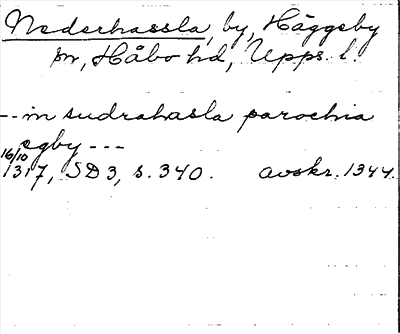 Nederhassla, by, Häggeby
sn, Håbo hd, Upps. l.
-- in sudrahasla parochia
egby ---
16/10 1317, SD 3, s. 340. avskr. 1344.